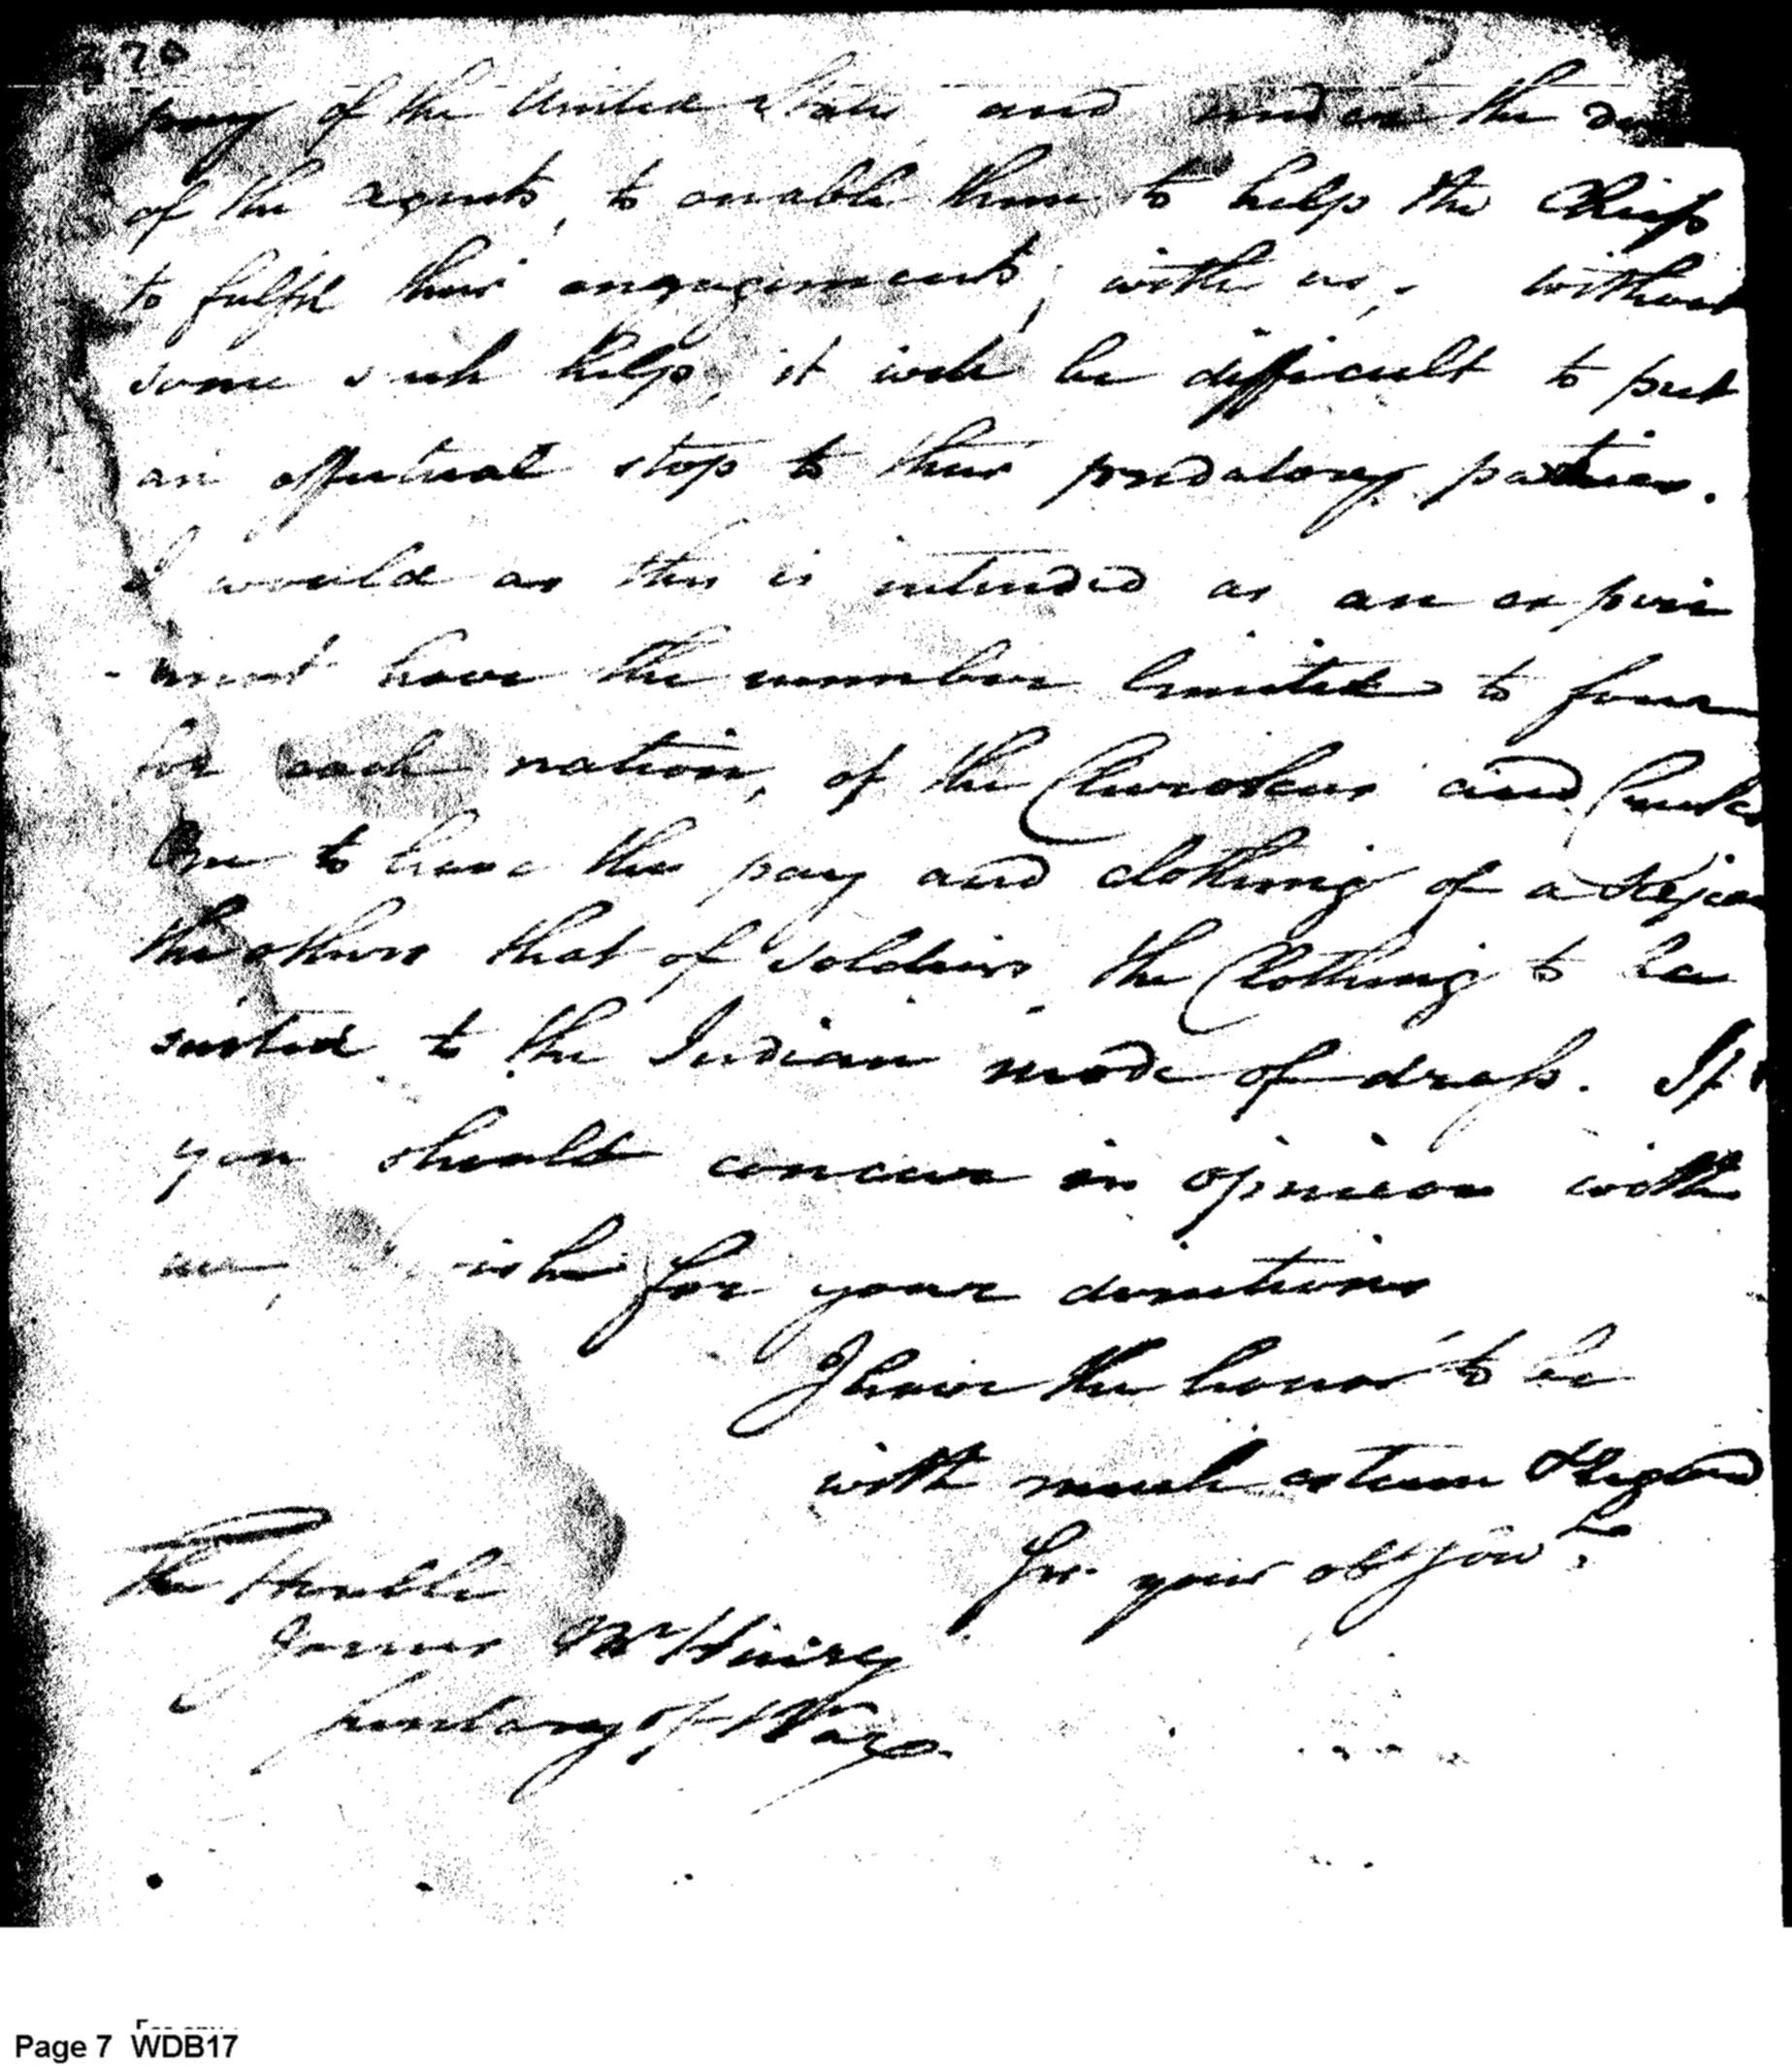 370
pay of the United States, and under the
of the agents, to enable them to help the Chiefs
to fulfil their engagements, with us. without
some such help, it will be difficult to put
an effectual stop to these predatory parties.
I would as this is intended as an experi
-ment have the number limited to four
for each nation, of the Cherokees and Creeks
One to have the pay and clothing of a
the others that of soldiers, the Clothing to be
suited to the Indian mode of dress. If
you should concur in opinion with
me, wish for your directions
I have the honor to be
with much esteem & regard
Sir your obt
The Honble
James McHenry
Secretary of War
Page 7 WDB17